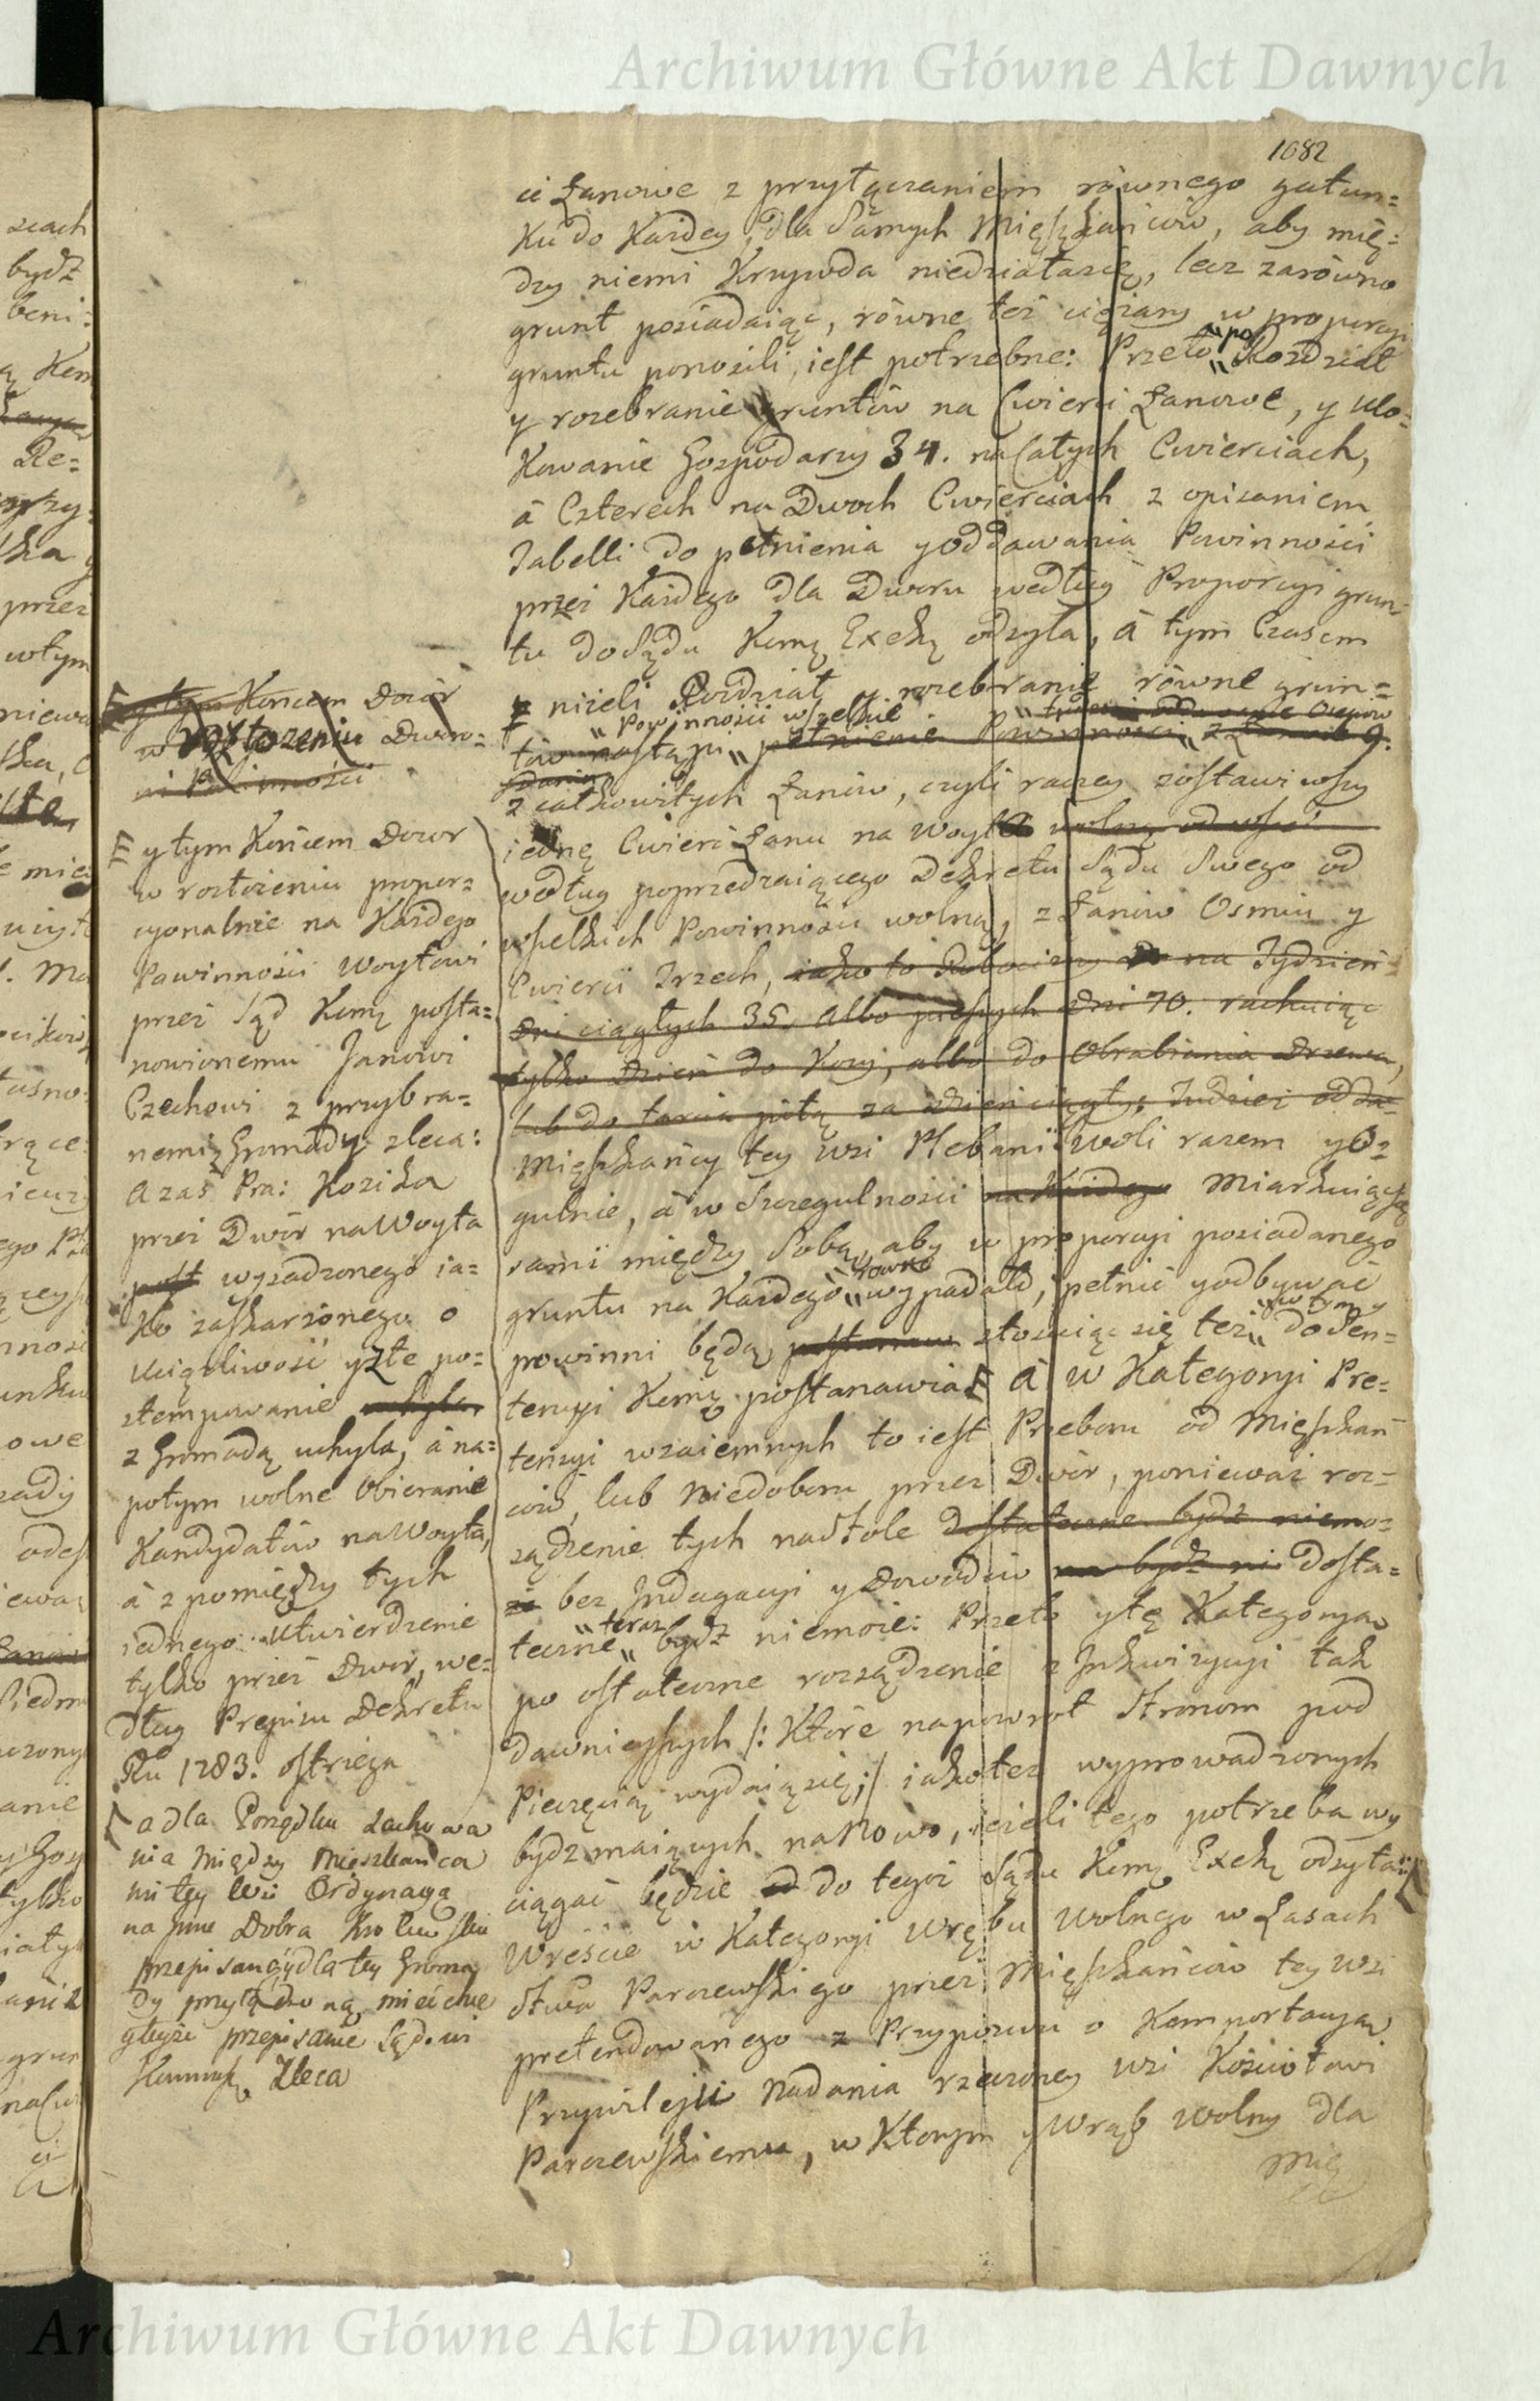 Archiwum Główne Akt Dawnych
1082
ci Łanowe z przyłączaniem równego gatun=
ku do Każdey, dla Samych Mięszkańców, aby mię=
dzy niemi Krzywda niedziałasię, lecz zarówno
grunt posiadaiąc, równe też ciężary w proporcyi
gruntu ponosili, iest potrzebne: Przeto " Rozdział
y rozebranie gruntów na Cwierci Łanowe, y Ulo=
kowanie Gospodarzy 34. na Całych Cwierciach,
á Czterech na Dwoch Cwierciach z opisaniem
Tabelli do pełnienia y oddawania Powinności
przez Każdego dla Dworu według Proporcyi grun=
tu do Sądu Kom Exek odsyła, á tym Czasem
niżeli Rozdział y rozebranie równe grun=
" Powinności wszelkie
tów nastąpi " pełnienie Powinności " z Łanów 9.
z całkowitych Łanów, czyli raczey zostawiwszy
iednę Cwierć Łanu na Woyta wolną od wsze
według poprzedzaiącego Dekretu Sądu Swego od
wszelkich Powinności wolną, z Łanów Osmiu y
Cwierci Trzech, iako to Robocizny na Tydzień
Dni ciągłych 35. albo pieszych Dni 70. rachuiąc
tylko Dzień do Kosy, albo do Obrabiania Drzewa,
lub do tarcia piłą za Dzień ciągły, Tudzież odda=
Mięszkańcy tey wsi Plebanii Woli razem y O=
gulnie, á w Szczegulności na Każdego Miarkuiąc się
sami między Sobą, aby w proporcyi posiadanego
równo
gruntu na Każdego " wypadało, pełnić y odbywać
w tym
powinni będą, stosuiąc się też " do Sen=
tencyi Kom postanawia F A w Kategoryi Pre=
tensyi wzaiemnych to iest Przeboru od Mięszkań
ców, lub Niedoboru przez Dwór, ponieważ roz=
sądzenie tych nadtole dostateczne bydź niemo=
że bez Indagacyi y Dowodów dosta=
" teraz
teczne " bydź niemoże: Przeto y tę Kategoryą
po ostateczne rozsądzenie z Inkwizycyi tak
dawnieyszych /: Które napowrot Stronom pod
Pieczęcią wydaią się :/ iako też wyprowadzonych
bydz maiących na Nowo, ieżeli tego potrzeba wy
ciągać będzie do tegoż Sądu Kom Exek odsyła
Wreście w Kategoryi Wrębu Wolnego w Lasach
Stwa Parczewskiego przez Mięszkańców tey wsi
pretendowanego z Przypozwu o Komportacyą
Przywileju Nadania rzeczoney wsi Kościołowi
Parczewskiemu, w Ktorym y Wrąb wolny dla
Mię
y tym Końcem Dwór
w rozłożeniu Dwor=
F y tym Końcem Dwor
w rozłożeniu propor=
cyonalnie na Każdego
Powinności Woytowi
przez Sąd Kom posta=
nowionemu Janowi
Czechowi z przybra=
nemi z Gromady zleca:
A zaś Pra: Kozika
przez Dwór na Woyta
wysadzonego ia=
ko zaskarżonego o
uciążliwość y złe po=
stempowanie
z Gromadą uchyla, á na=
potym wolne Obieranie
Kandydatów na Woyta,
á z pomiędzy tych
iednego Utwierdzenie
tylko przez Dwor, we=
dług Przepisu Dekretu
Ru 1783. ostrzega
a dla Porządku zachowa
nia Między Mieszkańca
mi tey Wsi Ordynacyą
na Jnne Dobra Krolewskie
przepisaną y dla tey Groma
dy
przepisanie Sądowi
Zleca
Archiwum Główne Akt Dawnych